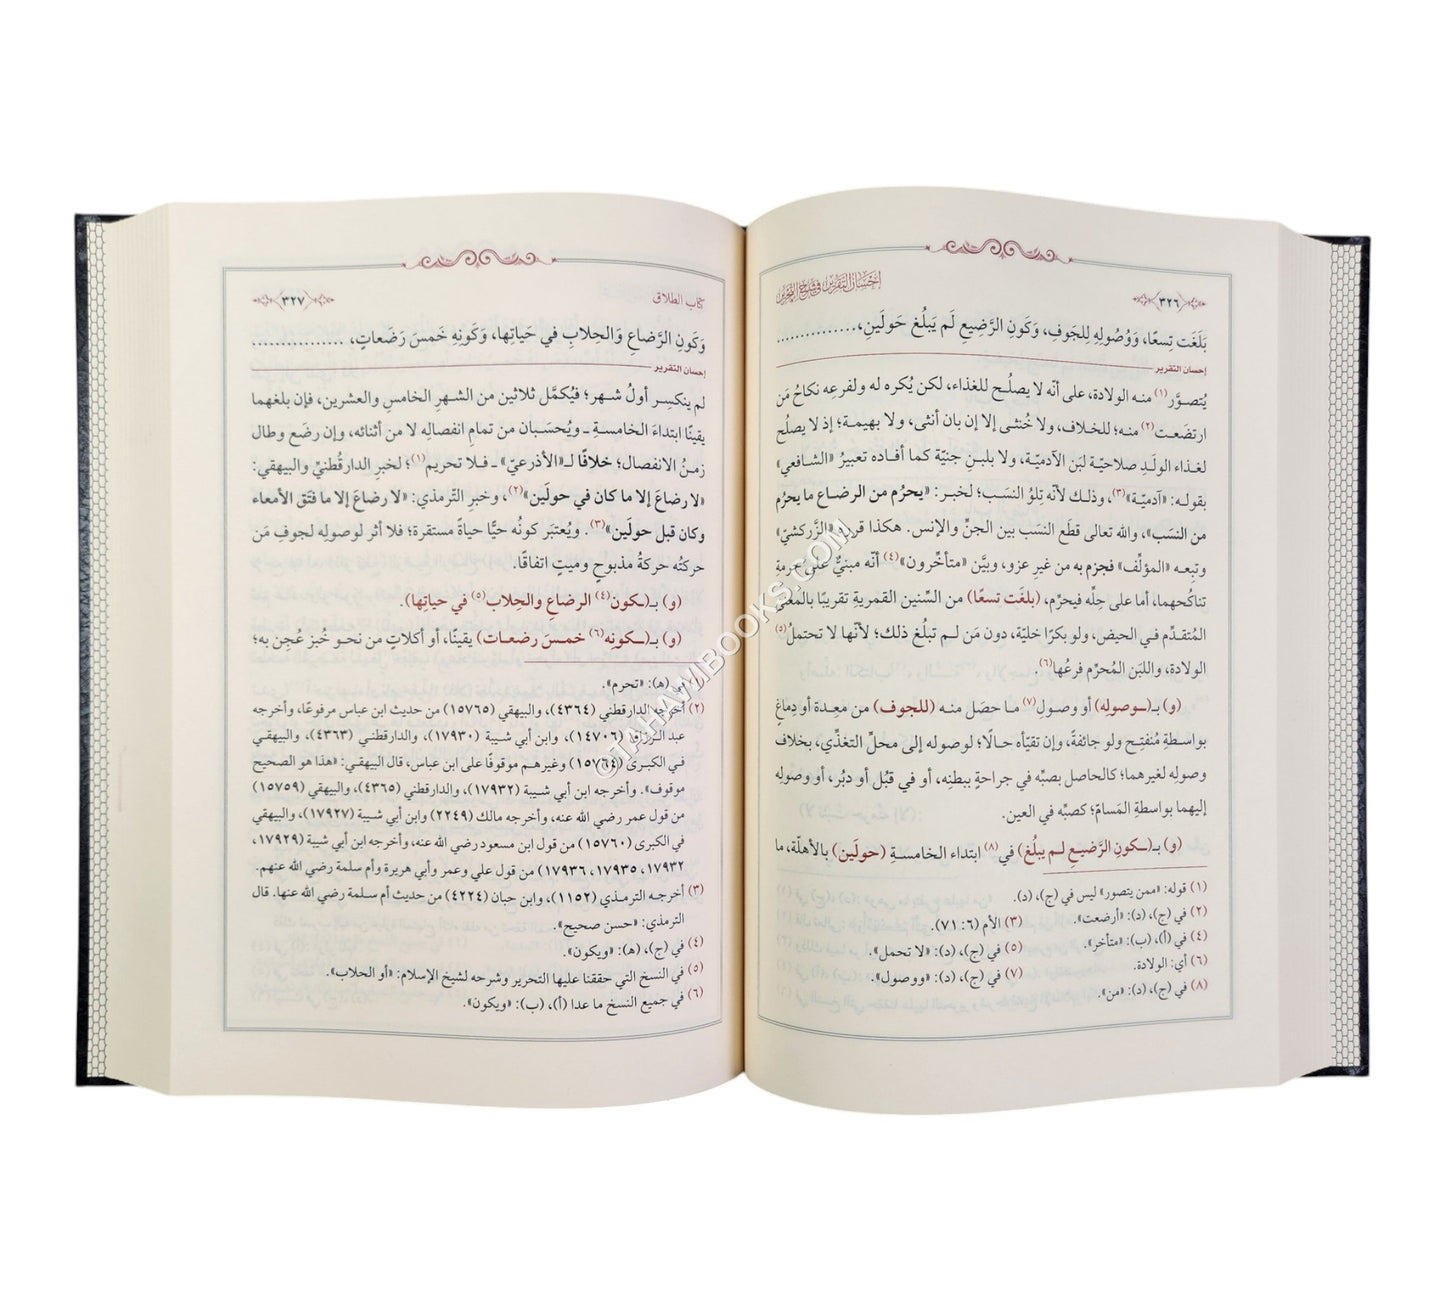 ﴿٣٢٦﴾ إحسان التقرير في شرح التحرير
بَلَغَت تِسعًا، وَوُصُولِهِ لِلجَوفِ، وَكَونِ الرَّضِيعِ لَم يَبلُغ حَولَينِ،..............
إحسان التقرير
يُتصوَّر(١) منه الولادة، على أنّه لا يصلُح للغذاء، لكن يُكره له ولفرعِه نكاحُ مَن
ارتضَعت(٢) منه؛ للخلاف، ولا خُنثى إلا إن بان أنثى، ولا بهيمة؛ إذ لا يصلُح
لغذاء الولَدِ صلاحيّة لبَن الآدميّة، ولا بلبنِ جنيّة كما أفاده تعبيرُ «الشافعي»
بقوله: «آدميّة»(٣)، وذلك لأنّه تِلوُ النسَب؛ لخبر: «يحرُم من الرضاع ما يحرُم
من النسَب»، والله تعالى قطَع النسَب بين الجنِّ والإنس. هكذا قرره «الزَّركشيّ»
وتبِعه «المؤلِّف» فجزم به من غيرِ عزو، وبيَّن «متأخِّرون»(٤) أنّه مبنيٌّ على حرمةِ
تناكُحهما، أما على حِلِّه فيحرُم، (بلغَت تسعًا) من السِّنين القمَرية تقريبًا بالمعنَى
المُتقدِّم في الحيض، ولو بكرًا خليّة، دون مَن لم تبلُغ ذلك؛ لأنّها لا تحتملُ(٥)
الولادة، واللبَن المُحرِّم فرعُها(٦).
(و) بـ(ـوصولِه) أو وصول(٧) ما حصَل منه (للجوف) من معِدة أو دِماغ
بواسطةِ مُنفتِح ولو جائفةً، وإن تقيّأه حالًا؛ لوصوله إلى محلِّ التغذِّي، بخلاف
وصولِه لغيرهما؛ كالحاصل بصبِّه في جراحةٍ ببطنِه، أو في قبُل أو دبُر، أو وصولِه
إليهما بواسطةِ المَسامّ؛ كصبِّه في العين.
(و) بـ(ـكونِ الرَّضيعِ لم يبلُغ) في(٨) ابتداء الخامسةِ (حولَين) بالأهلّة، ما
(١) قوله: «ممن يتصور» ليس في (ج)، (د).
(٢) في (ج)، (د): «أرضعت». (٣) الأم (٦: ٧١).
(٤) في (أ)، (ب): «متأخر». (٥) في (ج)، (د): «لا تحمل».
(٦) أي: الولادة. (٧) في (ج)، (د): «ووصول».
(٨) في (ج)، (د): «من».
كتاب الطلاق ﴿٣٢٧﴾
وَكَونِ الرَّضاعِ وَالحِلابِ في حَياتِها، وَكَونِهِ خَمسَ رَضَعاتٍ، ................
إحسان التقرير
لم ينكسِر أولُ شهر؛ فيُكمَّل ثلاثين من الشهرِ الخامسِ والعشرين، فإن بلغهما
يقينًا ابتداءَ الخامسةِ ـ ويُحسَبان من تمامِ انفصالِه لا من أثنائه، وإن رضَع وطال
زمنُ الانفصال؛ خلافًا لـ«الأذرعيّ» ـ فلا تحريم(١)؛ لخبرِ الدارقُطنيِّ والبيهقي:
«لا رضاعَ إلا ما كان في حولَين»(٢)، وخبرِ التّرمذي: «لا رضاعَ إلا ما فتَق الأمعاء
وكان قبل حولَين»(٣). ويُعتبَر كونُه حيًّا حياةً مستقرة؛ فلا أثر لوصولِه لجوفِ مَن
حركتُه حركةُ مذبوحٍ وميتٍ اتفاقًا.
(و) بـ(ـكون(٤) الرضاعِ والحِلاب(٥) في حياتِها).
(و) بـ(ـكونِه(٦) خمسَ رضعات) يقينًا، أو أكلاتٍ من نحوِ خُبزٍ عُجِن به؛
(١) في (هـ): «تحرم».
(٢) أخرجه الدارقطني (٤٣٦٤)، والبيهقي (١٥٧٦٥) من حديث ابن عباس مرفوعًا، وأخرجه
عبد الرزاق (١٤٧٠٦)، وابن أبي شيبة (١٧٩٣٠)، والدارقطني (٤٣٦٣)، والبيهقي
في الكبرى (١٥٧٦٤) وغيرهم موقوفًا على ابن عباس، قال البيهقي: «هذا هو الصحيح
موقوف». وأخرجه ابن أبي شيبة (١٧٩٣٢)، والدارقطني (٤٣٦٥)، والبيهقي (١٥٧٥٩)
من قول عمر رضي الله عنه، وأخرجه مالك (٢٢٤٩) وابن أبي شيبة (١٧٩٢٧)، والبيهقي
في الكبرى (١٥٧٦٠) من قول ابن مسعود رضي الله عنه، وأخرجه ابن أبي شيبة (١٧٩٢٩،
١٧٩٣٢، ١٧٩٣٥، ١٧٩٣٦) من قول علي وعمر وأبي هريرة وأم سلمة رضي الله عنهم.
(٣) أخرجه الترمذي (١١٥٢)، وابن حبان (٤٢٢٤) من حديث أم سلمة رضي الله عنها. قال
الترمذي: «حسن صحيح».
(٤) في (ج)، (هـ): «ويكون».
(٥) في النسخ التي حققنا عليها التحرير وشرحه لشيخ الإسلام: «أو الحلاب».
(٦) في جميع النسخ ما عدا (أ)، (ب): «ويكون».
©TAHAWIBOOKS.COM